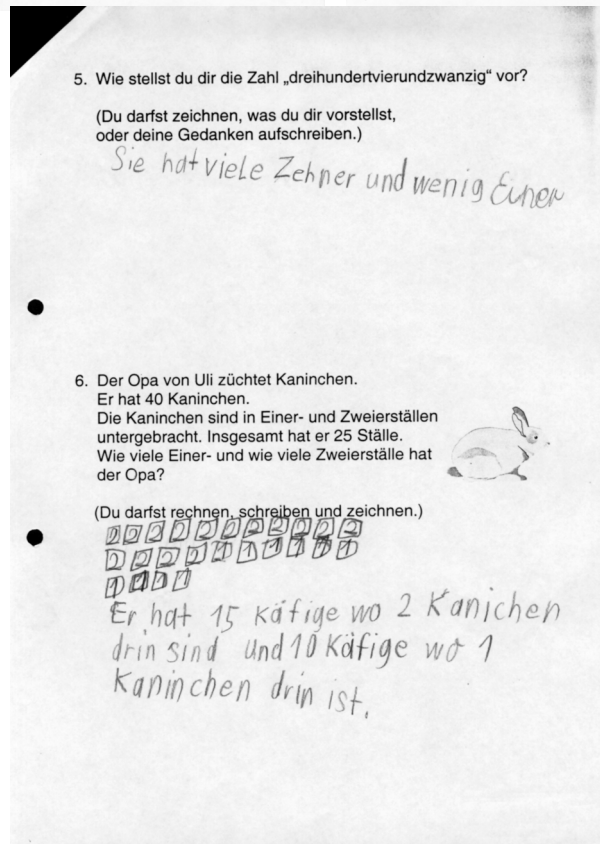 5. Wie stellst du dir die Zahl „dreihundertvierundzwanzig“ vor?
(Du darfst zeichnen, was du dir vorstellst,
oder deine Gedanken aufschreiben.)
Sie hat viele Zehner und wenig Einer
6. Der Opa von Uli züchtet Kaninchen.
Er hat 40 Kaninchen.
Die Kaninchen sind in Einer- und Zweierställen
untergebracht. Insgesamt hat er 25 Ställe.
Wie viele Einer- und wie viele Zweierställe hat
der Opa?
(Du darfst rechnen, schreiben und zeichnen.)
Er hat 15 Käfige wo 2 Kanichen
drin sind und 10 Käfige wo 1
Kaninchen drin ist.